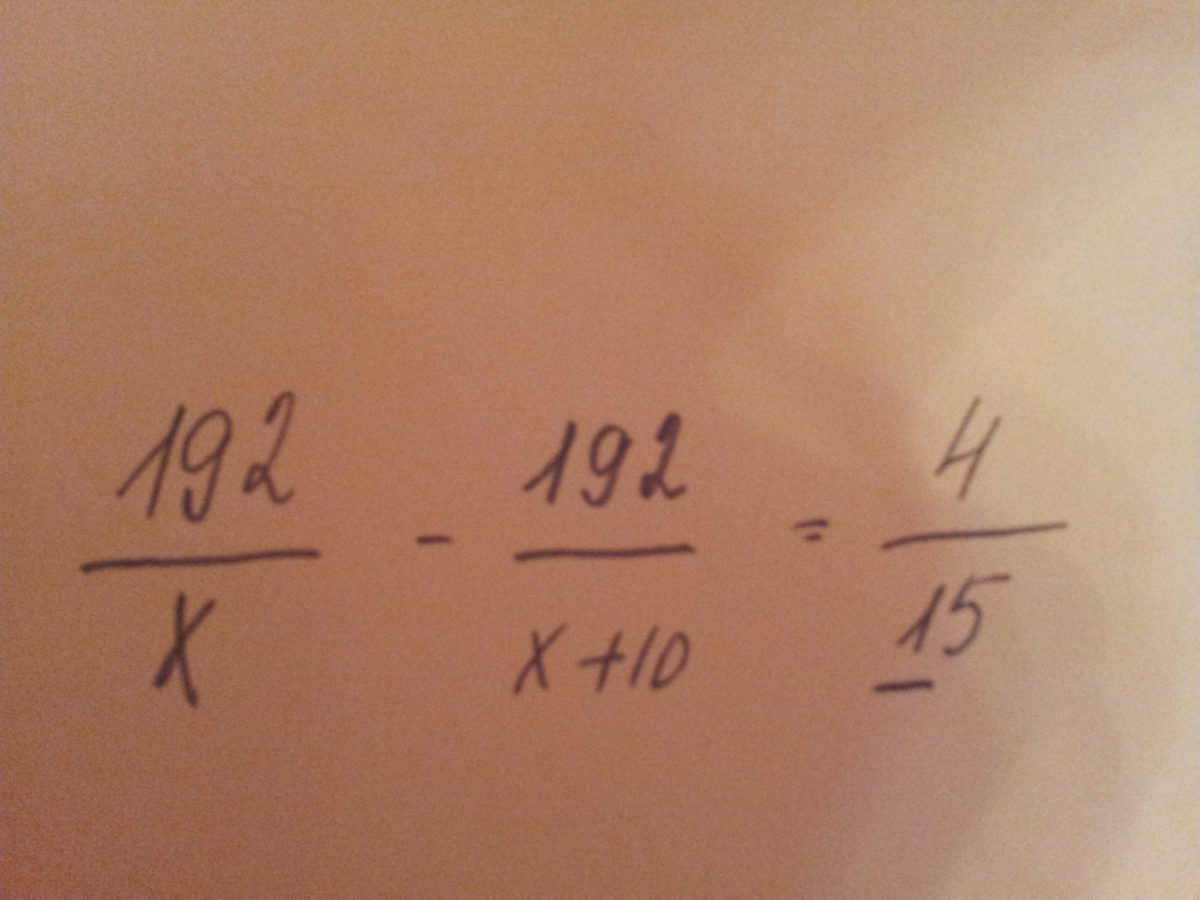 192/x - 192/x+10 = 4/15